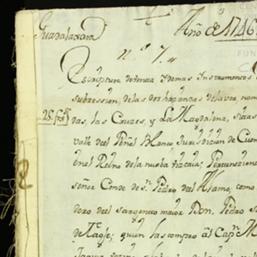 Guadalaxara
Año de 1746
n.º 7.
Escriptura de venta y demas Instrumentos
subression, de las dos haziendas de labor, nom
das, las Cruzes, y La Magdalena, sitas
valle del Peñol Blanco Jurisdicion de Cuen
en el Reino de la nueba Vizcaia; Perteneziente
señor Conde de S.n Pedro del Alamo, como
dero del sargento maior Don Pedro
de quien las compro al Cap.n M